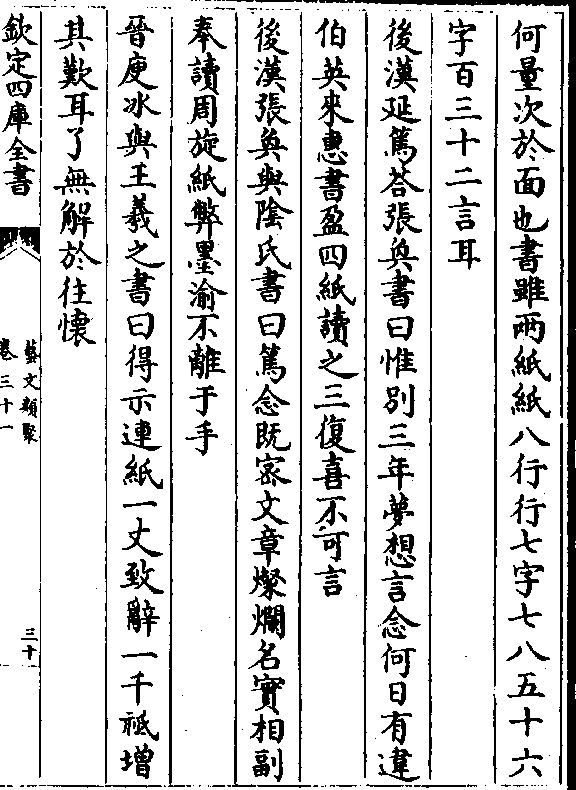 何量次於面也書雖兩紙紙八行行七字七八五十六
字百三十二言耳
後漢延篤荅張奐書曰惟別三年夢想言念何日有違
伯英來惠書盈四紙讀之三復喜不可言
後漢張奐與陰氏書曰篤念既密文章燦爛名實相副
奉讀周旋紙弊墨渝不離于手
晉庾冰與王羲之書曰得示連紙一丈致辭一千祗增
其歎耳了無解於往懷
欽定四庫全書
藝文類聚
卷三十一
三十